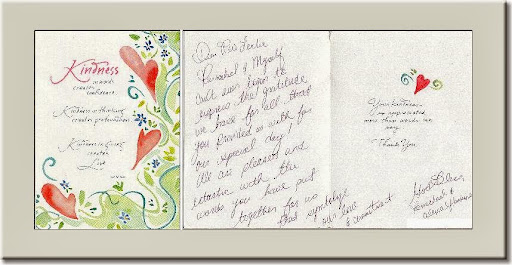 Kindness
in words
creates
confidence.
Kindness in thinking
creates profoundness.
Kindness in giving
creates
Love
Dear
& Myself
can't even begin to
express the gratitude
we have for all that
you provided us with for
our special day!
We are pleased and
ecstatic with the
words you have put
together for us
that symbolize
our love
& commitment
Your kindness
is appreciated
more than words can
say.
Thank You.
&